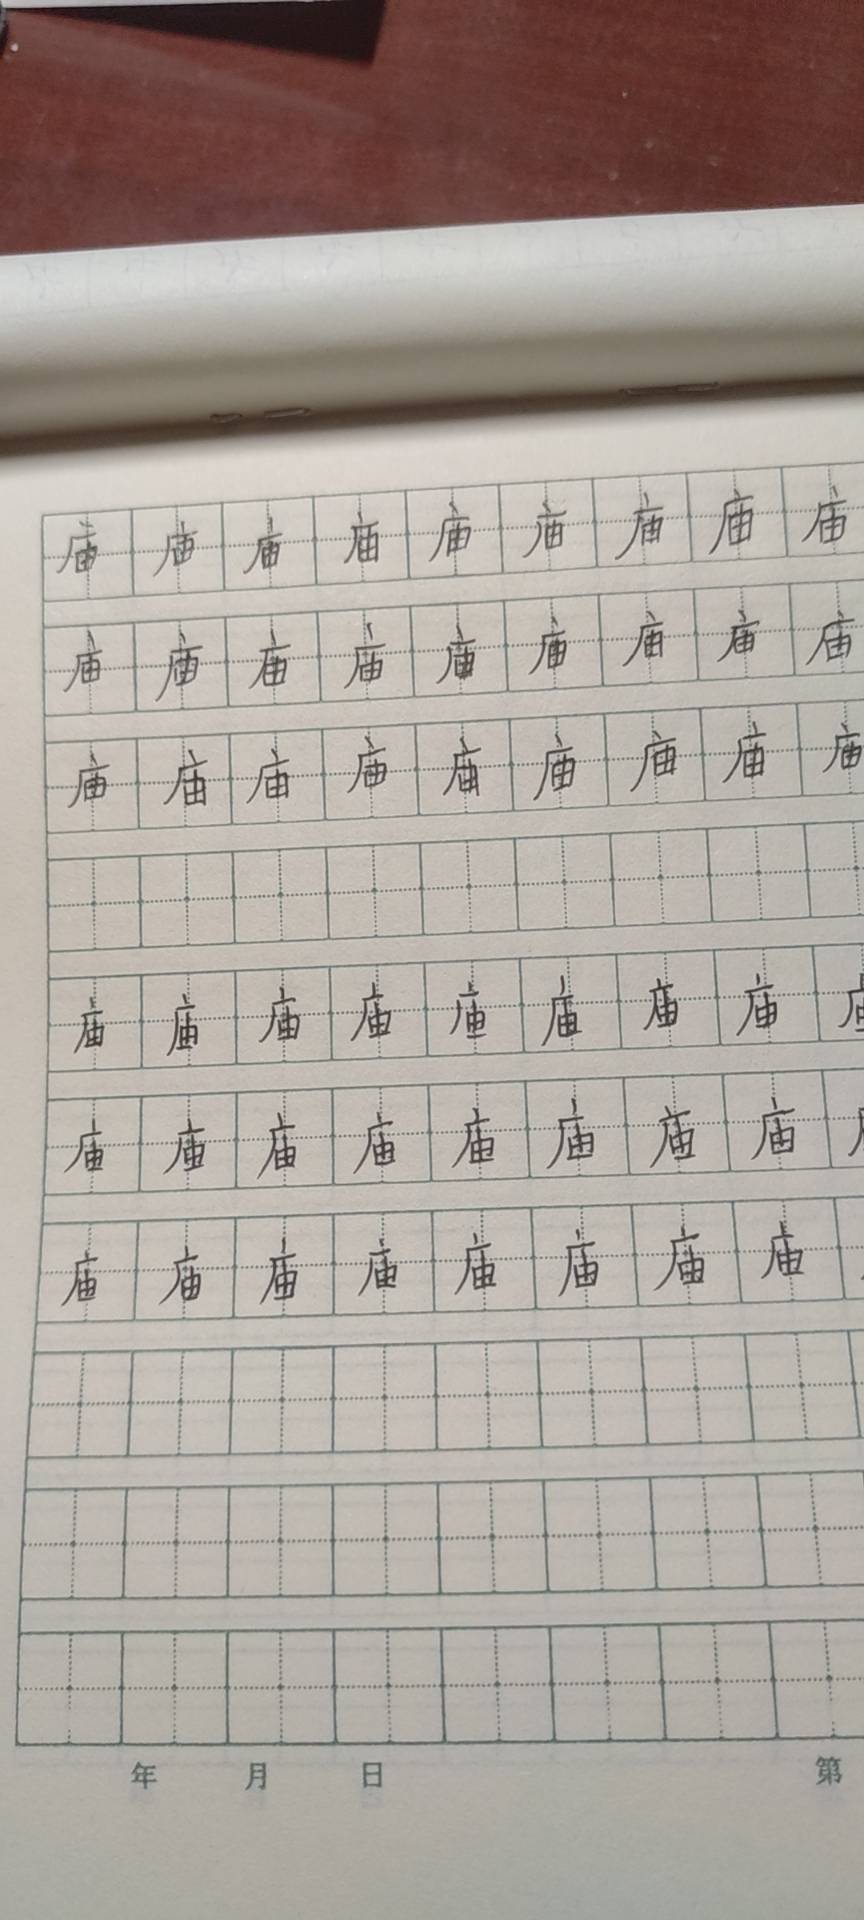 庙庙庙庙庙庙庙庙庙
庙庙庙庙庙庙庙庙庙
庙庙庙庙庙庙庙庙庙
庙庙庙庙庙庙庙庙
庙庙庙庙庙庙庙庙
庙庙庙庙庙庙庙庙
年 月 日 第